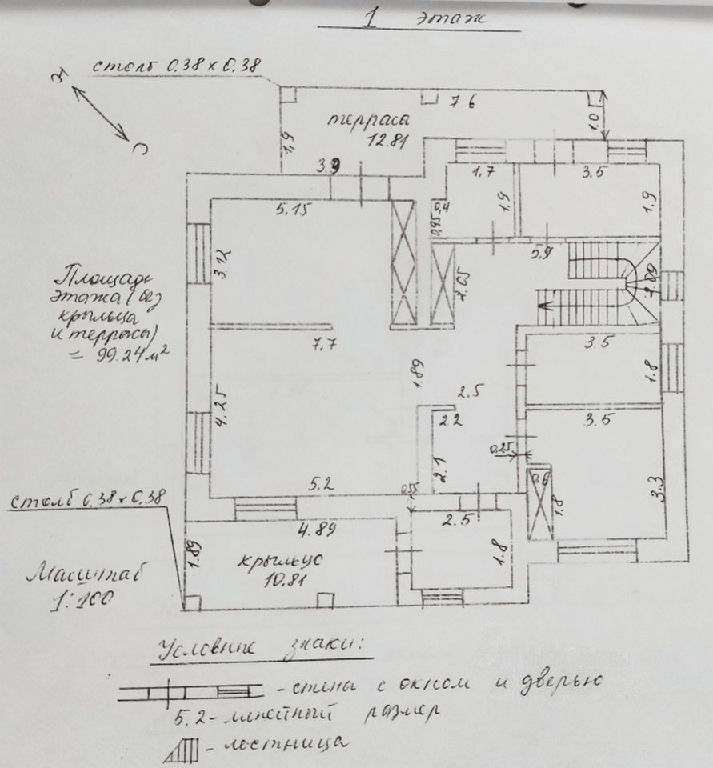 1 этаж
столб 0.38 х 0.38
Ю
С
7.6
1.0
терраса
12.81
1.9
3.9
1.7
3.5
5.15
0.4
0.95
1.9
1.9
3.12
5.9
2.05
Площадь
этажа (без
крыльца
и террасы)
= 99.24 м²
7.7
3.5
1.89
1.8
4.25
2.5
2.2
3.5
0.25
2.1
5.2
0.6
1.8
3.3
столб 0.38 х 0.38
4.89
2.5
1.89
крыльцо
10.81
1.8
Масштаб
1:100
Условные знаки:
- стены с окном и дверью
5.2 - линейный размер
- лестница